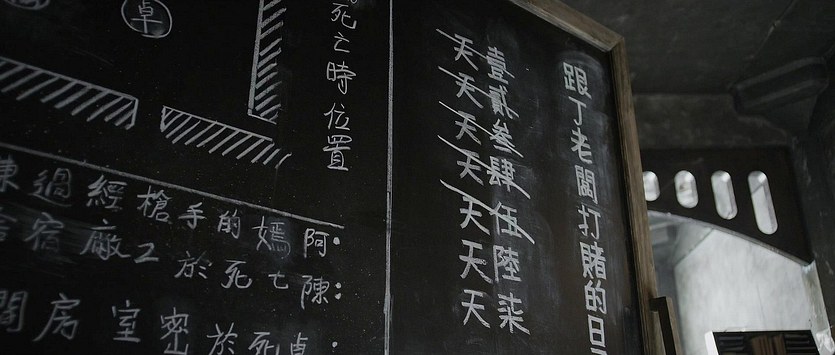 跟丁老闆打賭的日
壹天
貳天
叁天
肆天
伍天
陸天
柒天
死亡時位置
卓
阿:嫣的手槍經過
陳:亡死於工廠宿舍
卓:死於密室房間